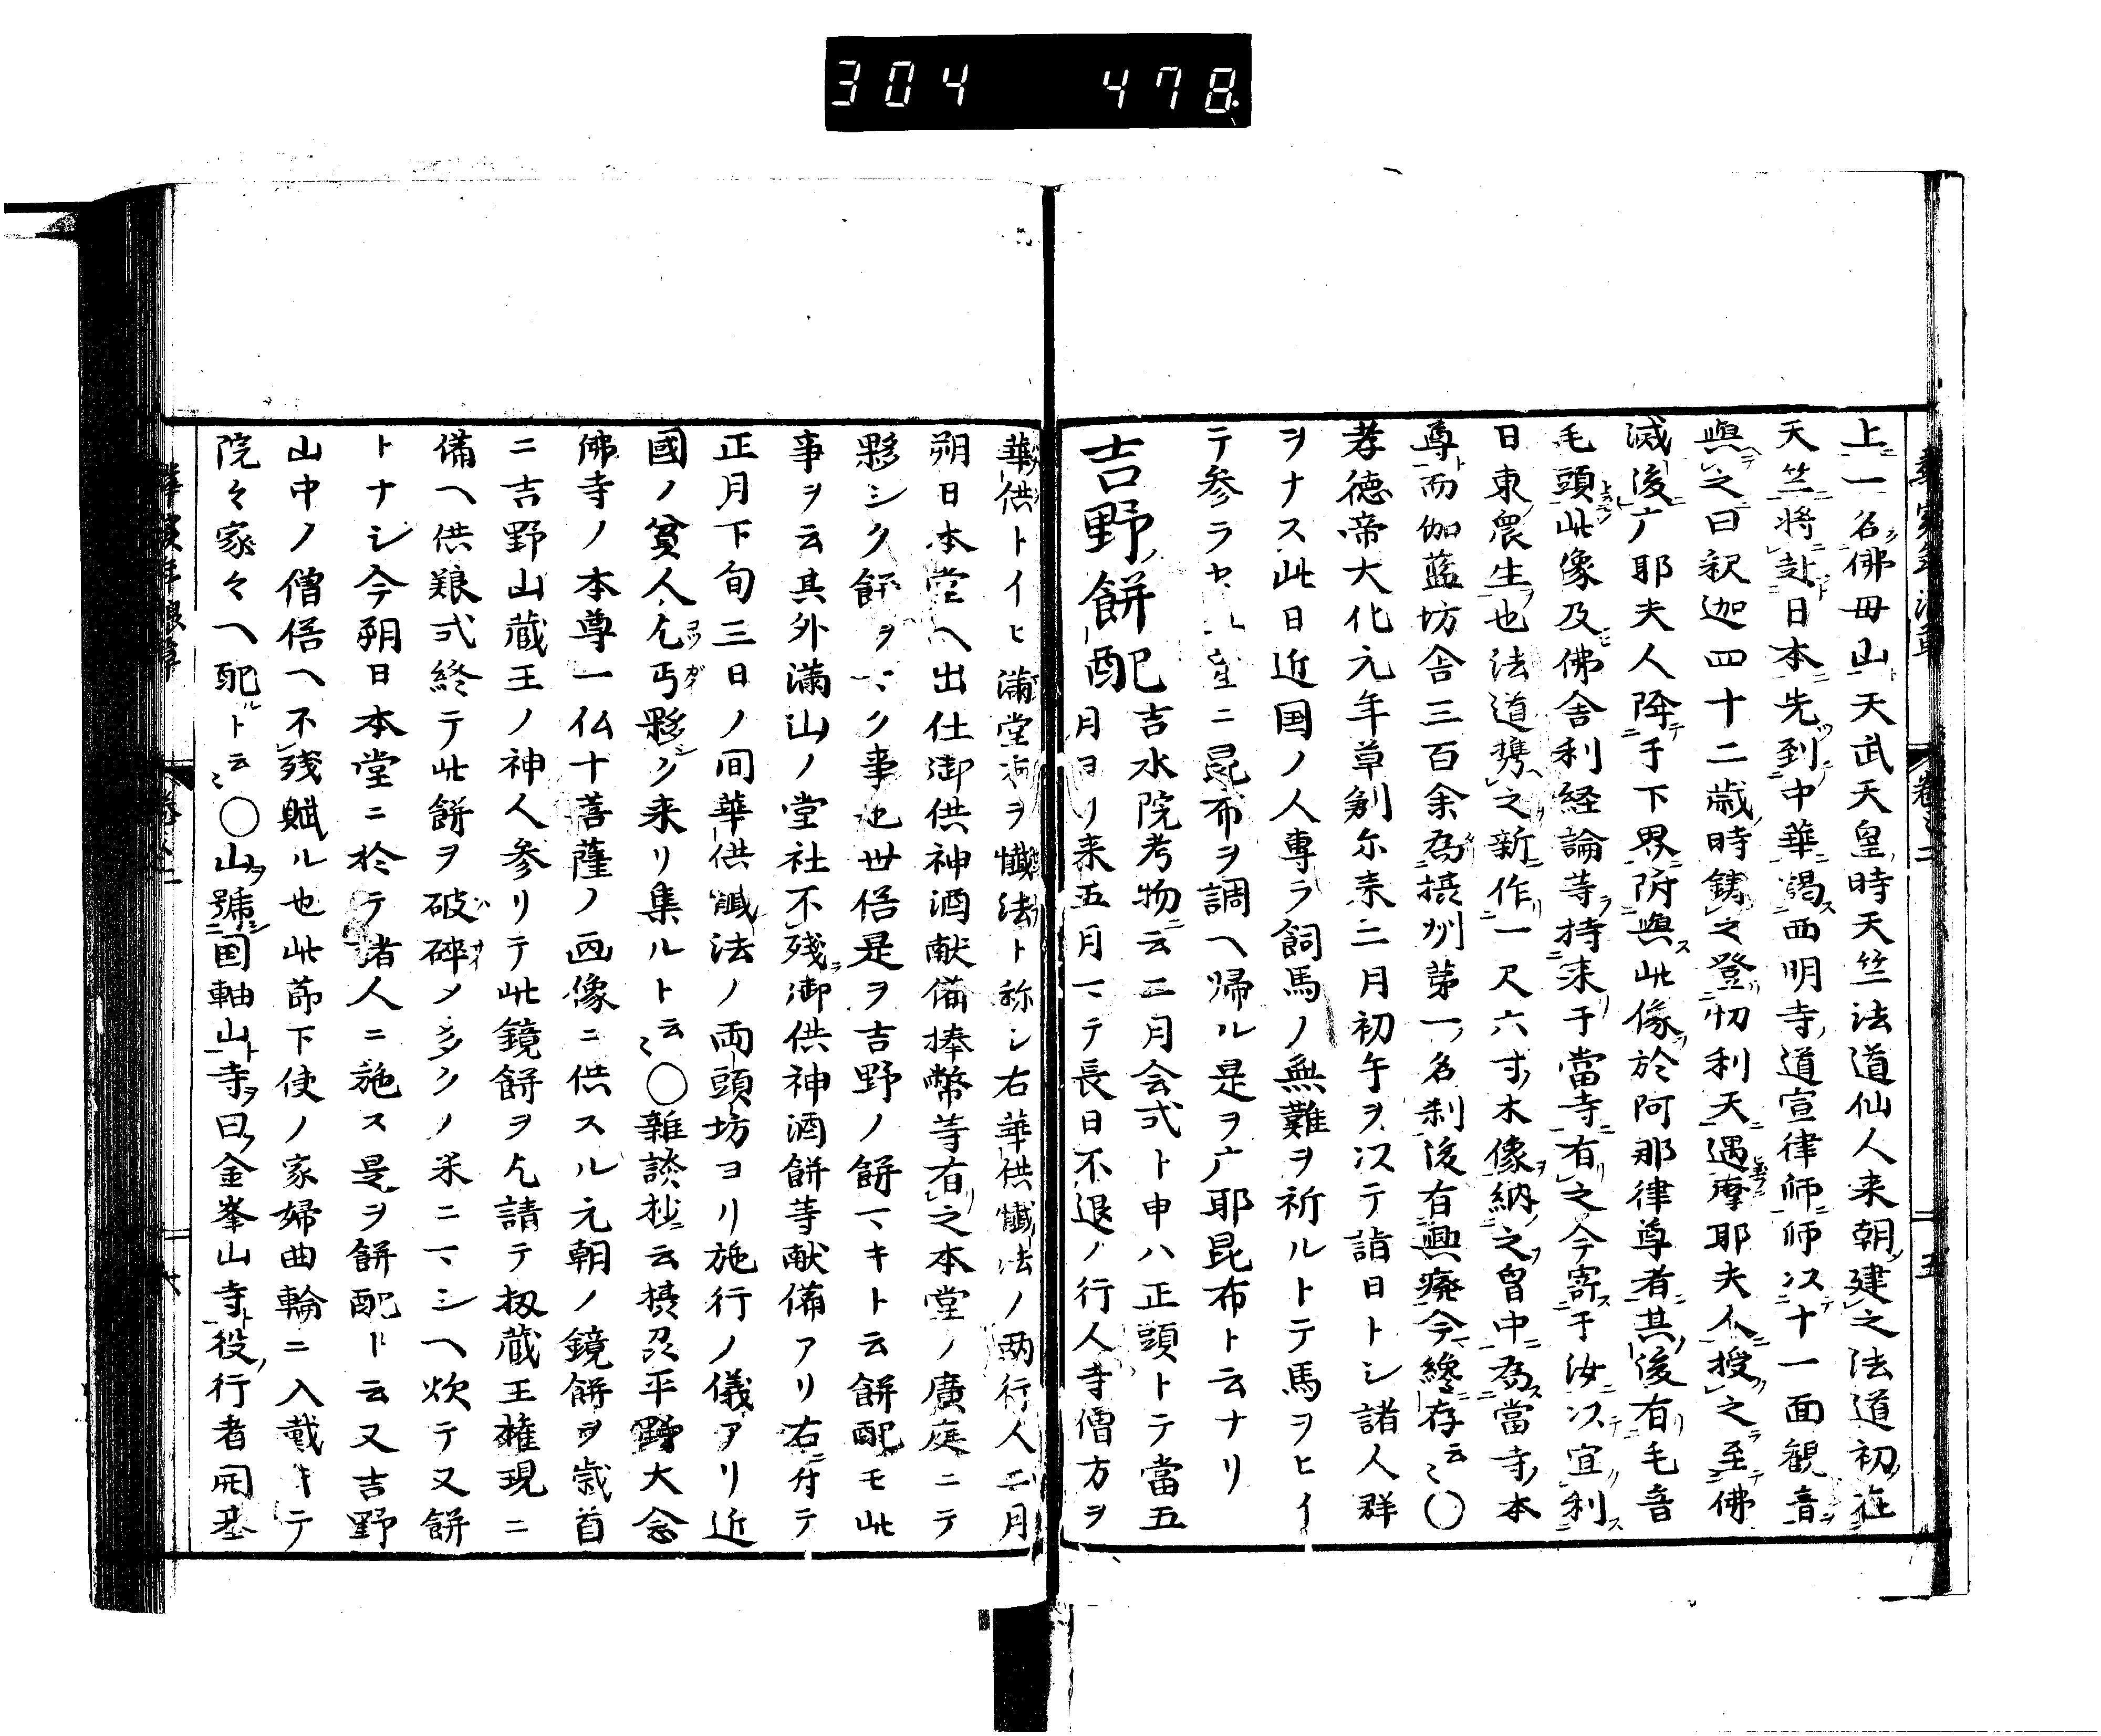 304 478
上一名佛母山天武天皇時天竺法道仙人来朝建之法道初在
天竺将赴日本先到中華謁西明寺道宣律師師以十一面観音
與之曰釈迦四十二歳時鋳之登忉利天遇摩耶夫人授之至佛
滅後广耶夫人降于下界附與此像於阿那律尊者其後有毛音
毛頭此像及佛舎利経論等持来于當寺有之今寄于汝以宜利
日東衆生也法道携之新作一尺六寸木像納之曽中為當寺本
尊而伽藍坊舎三百余為摂州第一名刹後有興廃今纔存云々〇
孝徳帝大化元年草創尓来二月初午ヲ以テ詣日トシ諸人群
ヲナス此日近国ノ人専ラ飼馬ノ無難ヲ祈ルトテ馬ヲヒイ
テ参ラセ ニ昆布ヲ調ヘ帰ル是ヲ广耶昆布ト云ナリ
吉野餅配
吉水院考物云二月会式ト申ハ正頭トテ當五
月ヨリ来五月マテ長日不退ノ行人寺僧方ヲ
華供トイヒ満堂方ヲ懴法ト称シ右華供懴法ノ両行人二月
朔日本堂ヘ出仕御供神酒献備捧幣等有之本堂ノ廣庭ニテ
夥シク餅ヲマク事也世俗是ヲ吉野ノ餅マキト云餅配モ此
事ヲ云其外満山ノ堂社不残御供神酒餅等献備アリ右付テ
正月下旬三日ノ間華供懴法ノ両頭坊ヨリ施行ノ儀アリ近
國ノ貧人乞丐夥ク来リ集ルト云々〇雑談抄云摂刕平野大念
佛寺ノ本尊一仏十菩薩ノ画像ニ供スル元朝ノ鏡餅ヲ歳首
ニ吉野山蔵王ノ神人参リテ此鏡餅ヲ乞請テ扨蔵王権現ニ
備ヘ供粮式終テ此餅ヲ破砕メ多クノ米ニマシヘ炊テ又餅
トナシ今朔日本堂ニ於テ諸人ニ施ス是ヲ餅配ト云又吉野
山中ノ僧俗ヘ不残賦ル也此節下使ノ家婦曲輪ニ入戴キテ
院々家々ヘ配ルト云々〇山號国軸山寺曰金峯山寺役行者開基